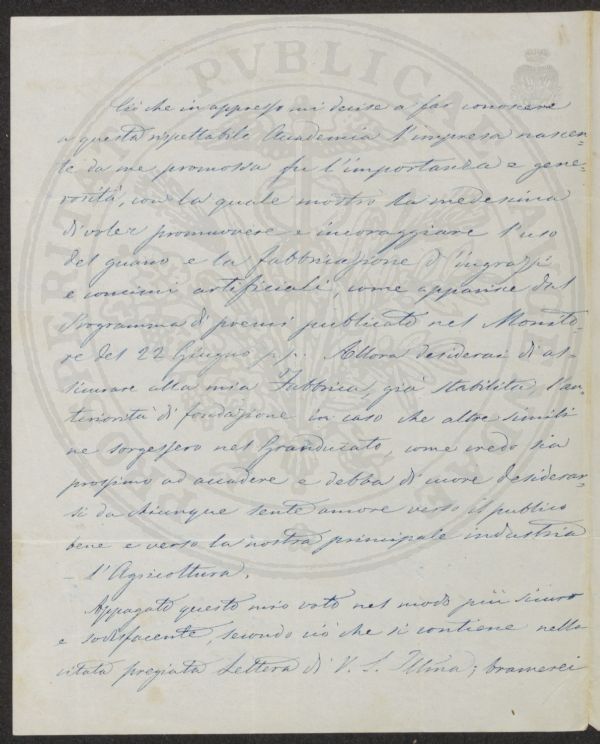 Ciò che in appresso mi decise a far conoscere
a questa rispettabile Accademia l'impresa nascen=
te da me promossa fu l'importanza e gene=
rosità, con la quale mostrò la medesima
di voler promuovere e incoraggiare l'uso
del guano e la fabbricazione d'ingrassi
e concimi artificiali, come apparisce dal
Programma di premi publicato nel Monito=
re del 22 Giugno p.p. Allora desiderai di as=
sicurare alla mia Fabbrica, già stabilita, l'an=
teriorità di fondazione in caso che altre simili
ne sorgessero nel Granducato, come credo sia
prossimo ad accadere e debba di cuore desiderar=
si da chiunque sente amore verso il publico
bene e verso la nostra principale industria
– l'Agricoltura.
Appagato questo mio voto nel modo più sicuro
e sodisfacente, secondo ciò che si contiene nella
citata pregiata Lettera di V. S. Illma; bramerei